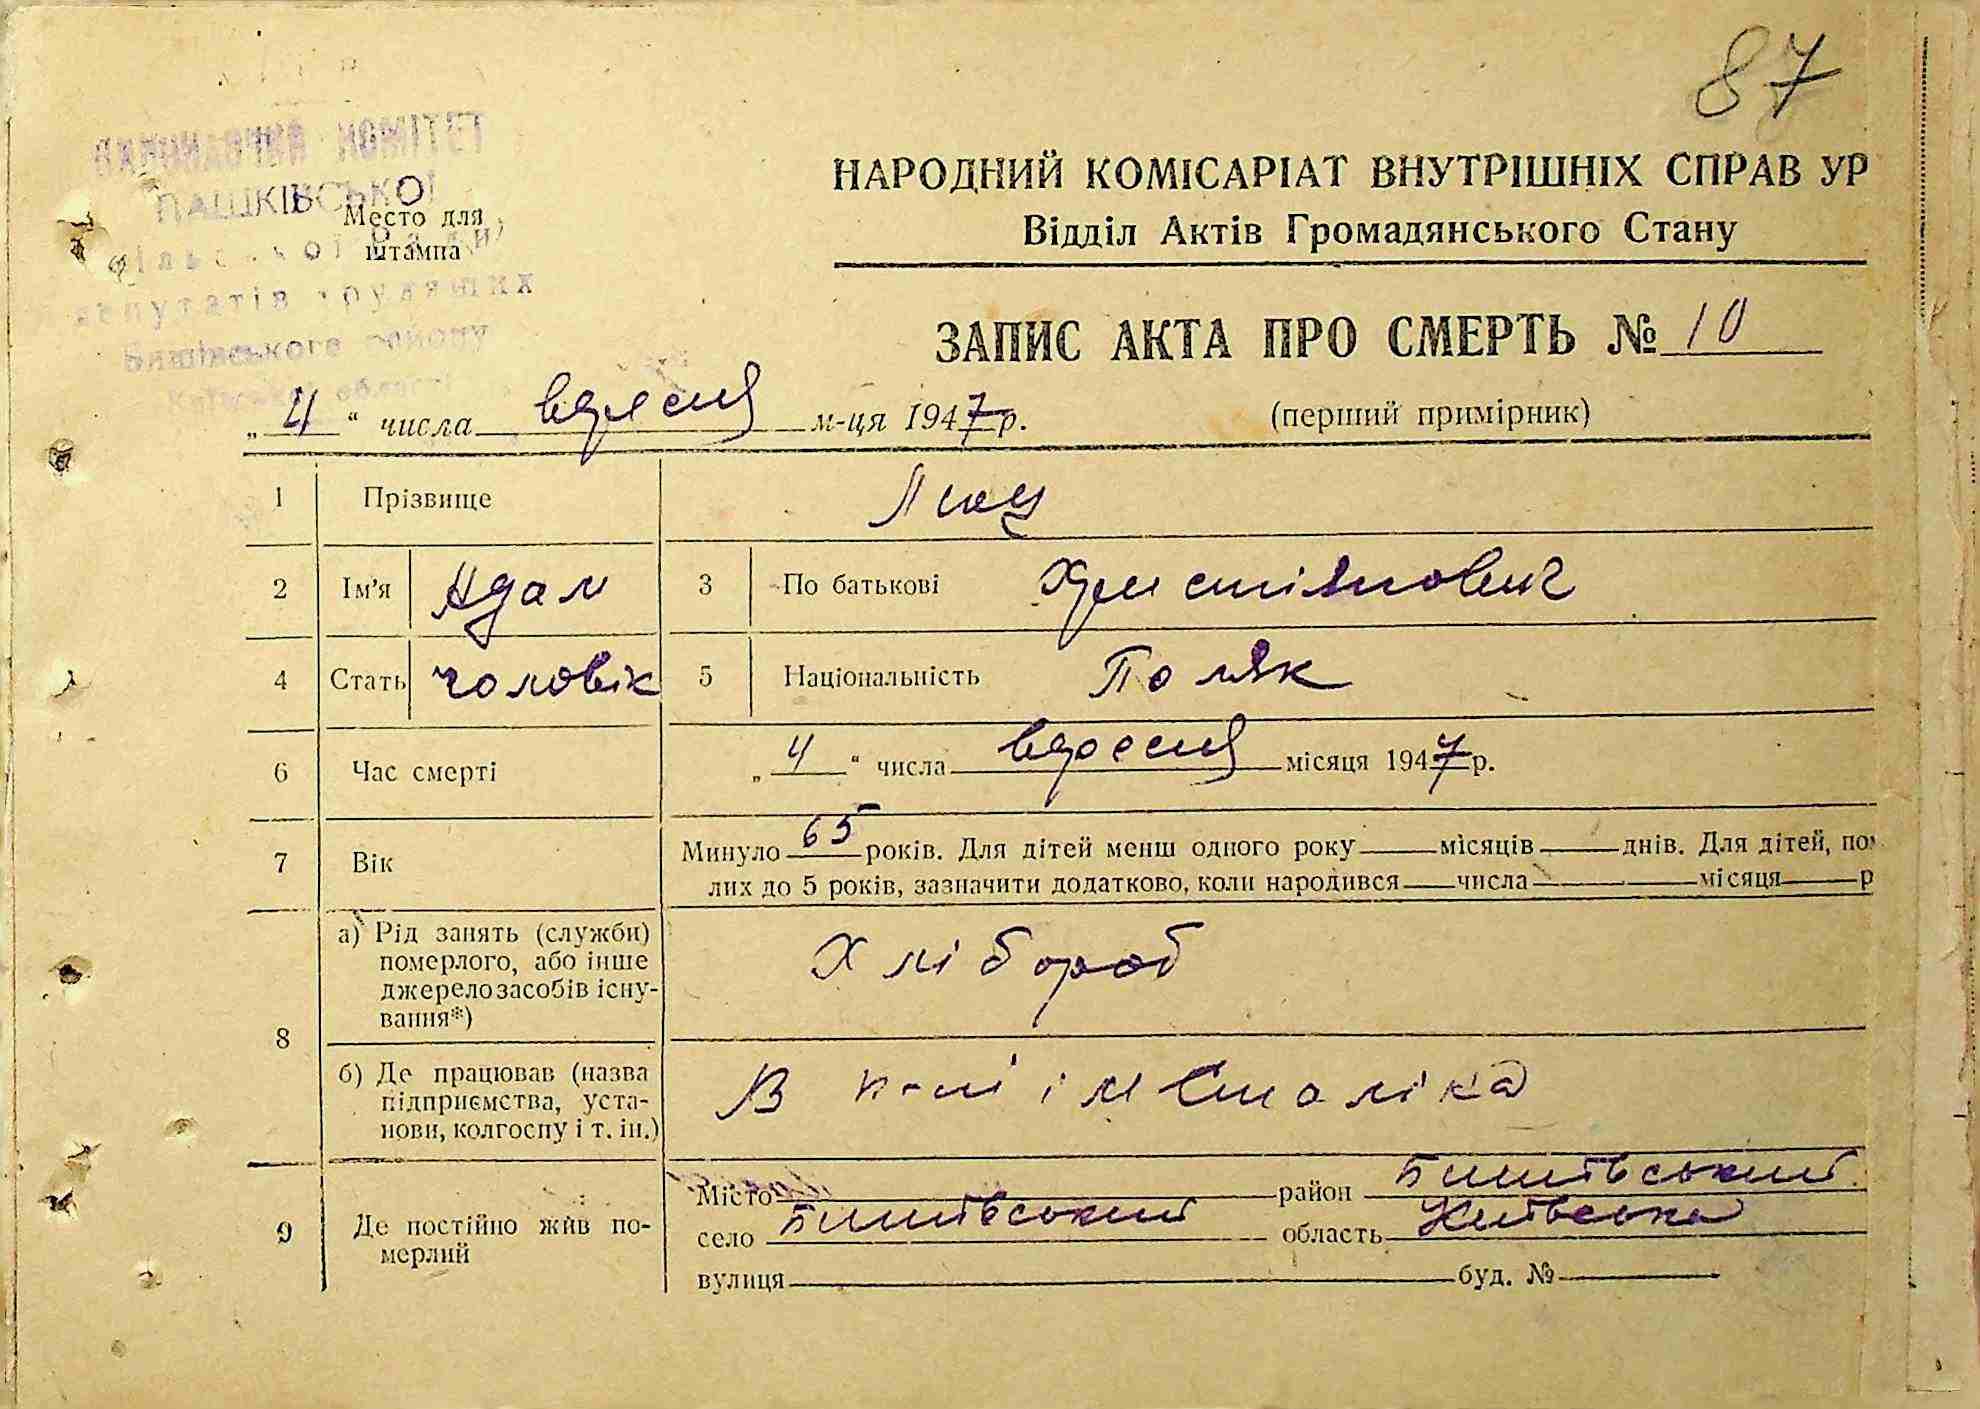 87
ВИКОНАВЧИЙ КОМІТЕТ
ПАШКІВСЬКОЇ
Место для
штампа
сільської Ради
депутатів трудящих
Бишівського району
Київської області
НАРОДНИЙ КОМІСАРІАТ ВНУТРІШНІХ СПРАВ УР
Відділ Актів Громадянського Стану
ЗАПИС АКТА ПРО СМЕРТЬ № 10
„4“ числа вересня м-ця 1947 р.
(перший примірник)
1 Прізвище Люц
2 Ім’я Адам 3 По батькові Христіянович
4 Стать чоловік 5 Національність Поляк
6 Час смерті „4“ числа вересня місяця 1947 р.
7 Вік Минуло 65 років. Для дітей менш одного року місяців днів. Для дітей, по
лих до 5 років, зазначити додатково, коли народився числа місяця р
8 а) Рід занять (служби)
померлого, або інше
джерело засобів існу-
вання*)
Хлібороб
б) Де працював (назва
підприємства, уста-
нови, колгоспу і т. ін.)
В к-лі ім Сталіка
9 Де постійно жив по-
мерлий
Місто район Бишівський
село Бишівський область Київська
вулиця буд. №